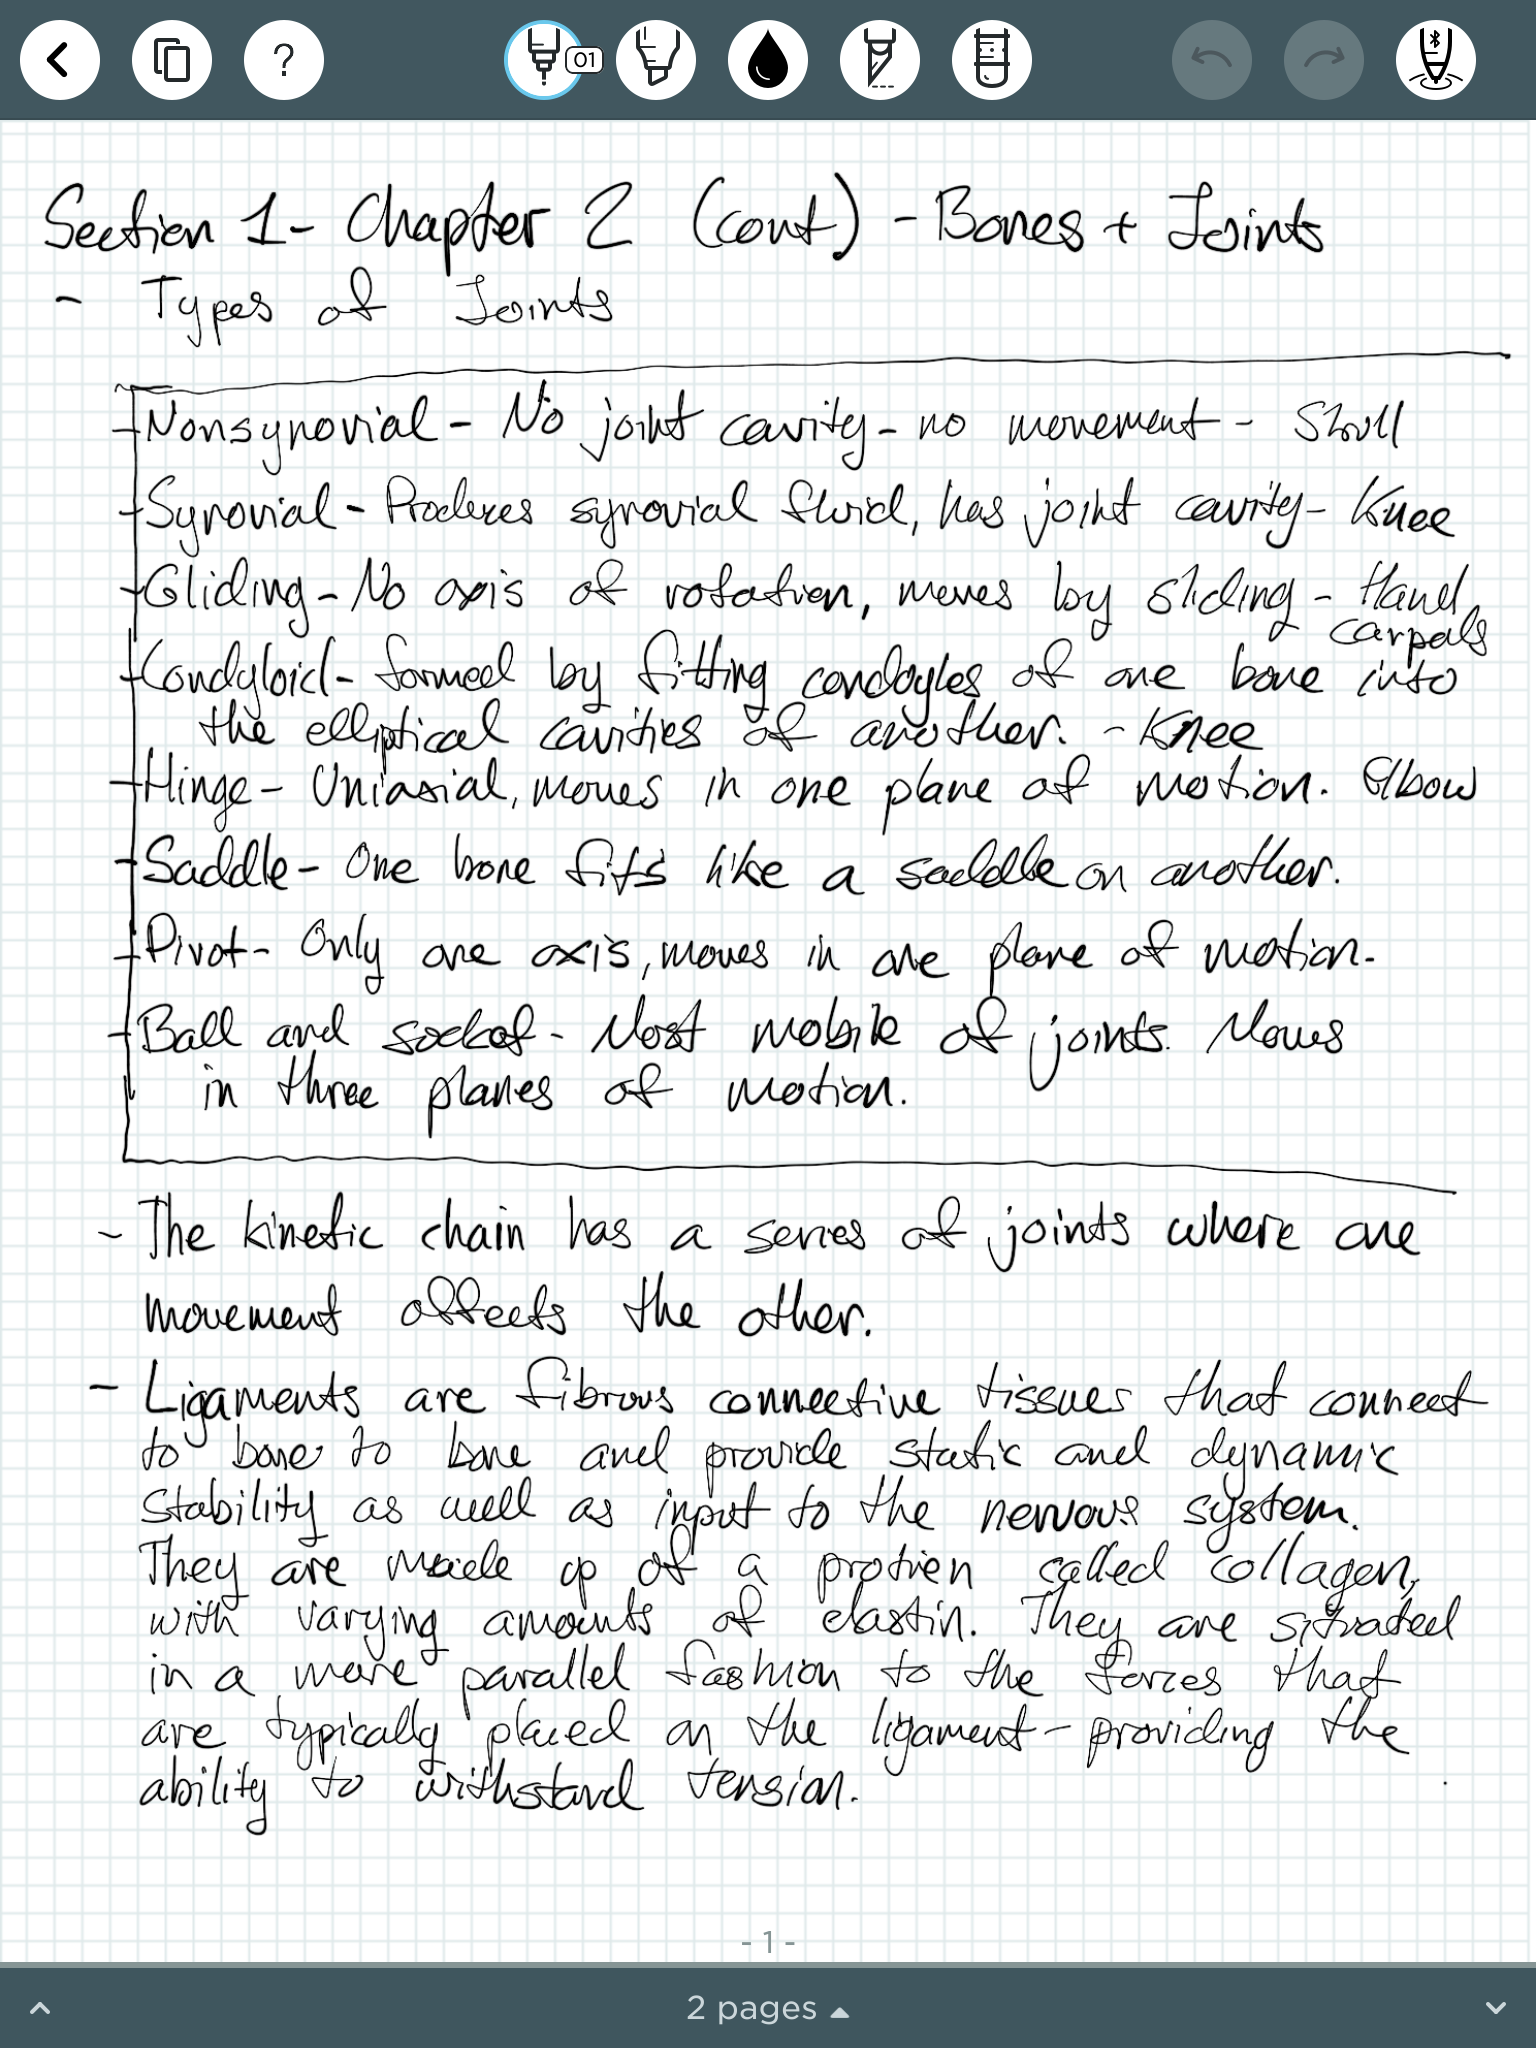 ?
01
Section 1 - Chapter 2 (cont) - Bones + Joints
- Types of Joints
- Nonsynovial - No joint cavity - no movement - Skull
- Synovial - Produces synovial fluid, has joint cavity - Knee
- Gliding - No axis of rotation, moves by sliding - Hand
carpals
- Condyloid - formed by fitting condoyles of one bone into
the elliptical cavities of another. - Knee
- Hinge - Uniaxial, moves in one plane of motion. Elbow
- Saddle - One bone fits like a saddle on another.
- Pivot - Only one axis, moves in one plane of motion.
- Ball and socket - Most mobile of joints. Moves
in three planes of motion.
- The kinetic chain has a series of joints where one
movement affects the other.
- Ligaments are fibrous connective tissues that connect
to bone to bone and provide static and dynamic
stability as well as input to the nervous system.
They are made up of a protien called collagen,
with varying amounts of elastin. They are situated
in a more parallel fashion to the forces that
are typically placed on the ligament - providing the
ability to withstand tension.
- 1 -
2 pages